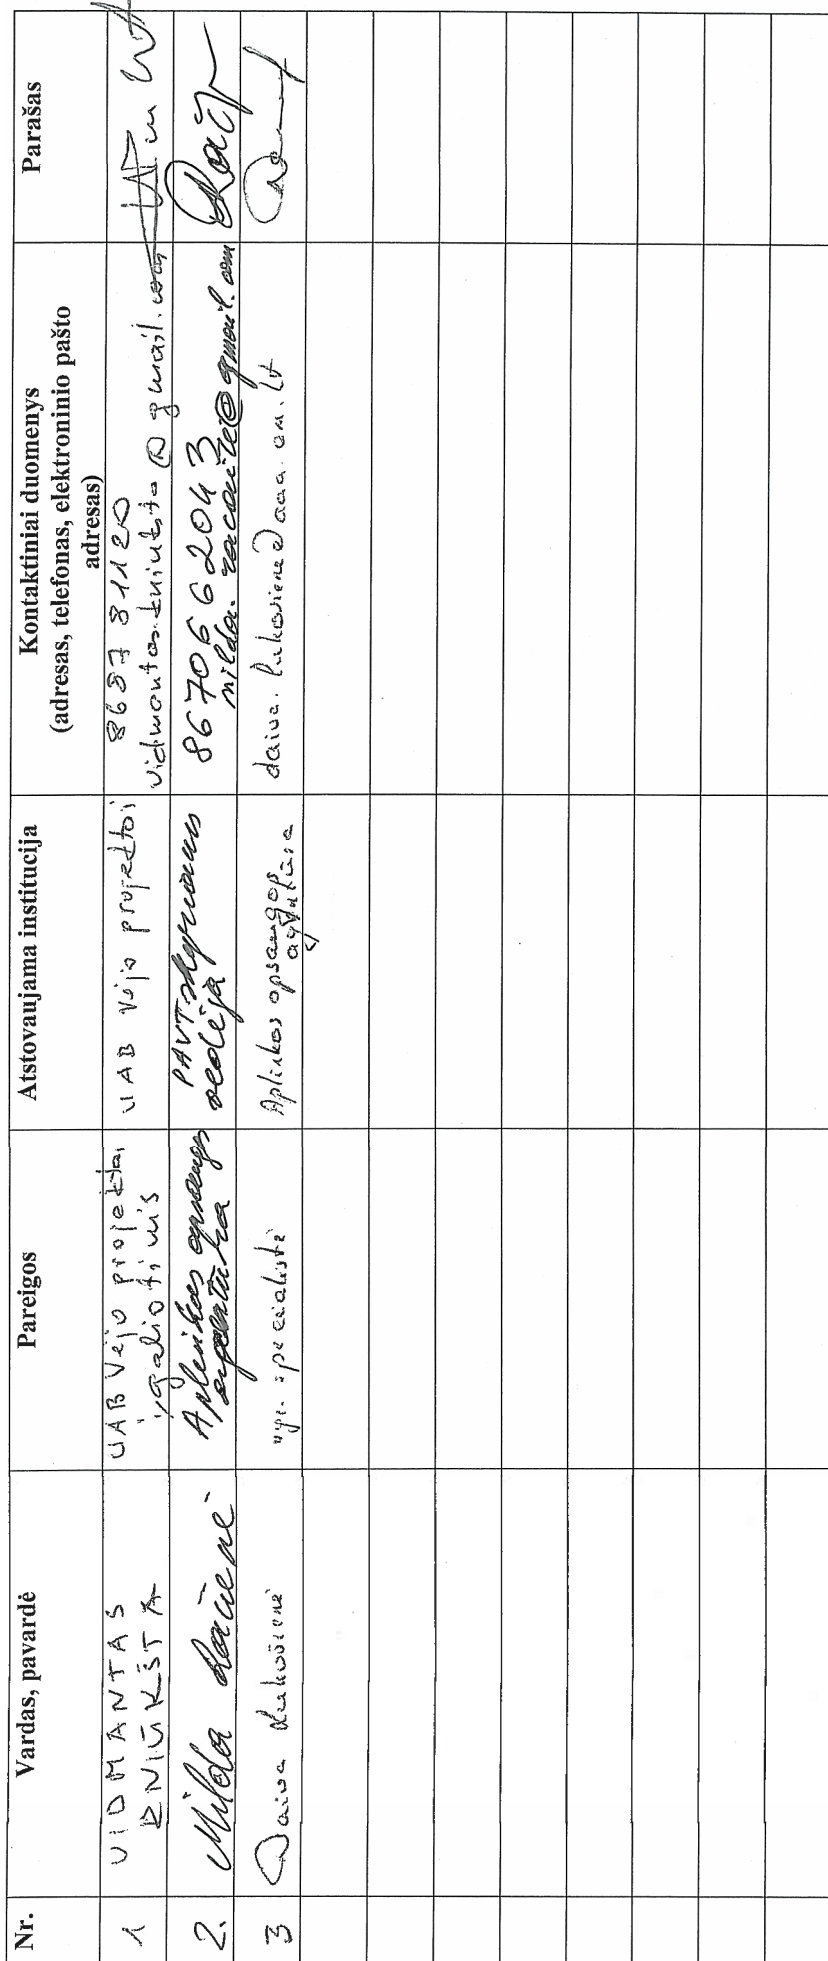 Nr.
Vardas, pavardė
Pareigos
Atstovaujama institucija
Kontaktiniai duomenys
(adresas, telefonas, elektroninio pašto
adresas)
Parašas
1
VIDMANTAS
KNIŪKŠTA
UAB Vėjo projektai
įgaliotinis
UAB Vėjo projektai
8687 81120
vidmantas.kniuksta@gmail.com
2.
Milda Račienė
Aplinkos apsaugos
agentūra
PAVT skyriaus
vedėja
8670662043
milda.raciene@gmail.com
3
Daiva Lukošienė
vyr. specialistė
Aplinkos apsaugos
agentūra
daiva.lukosiene@aaa.am.lt